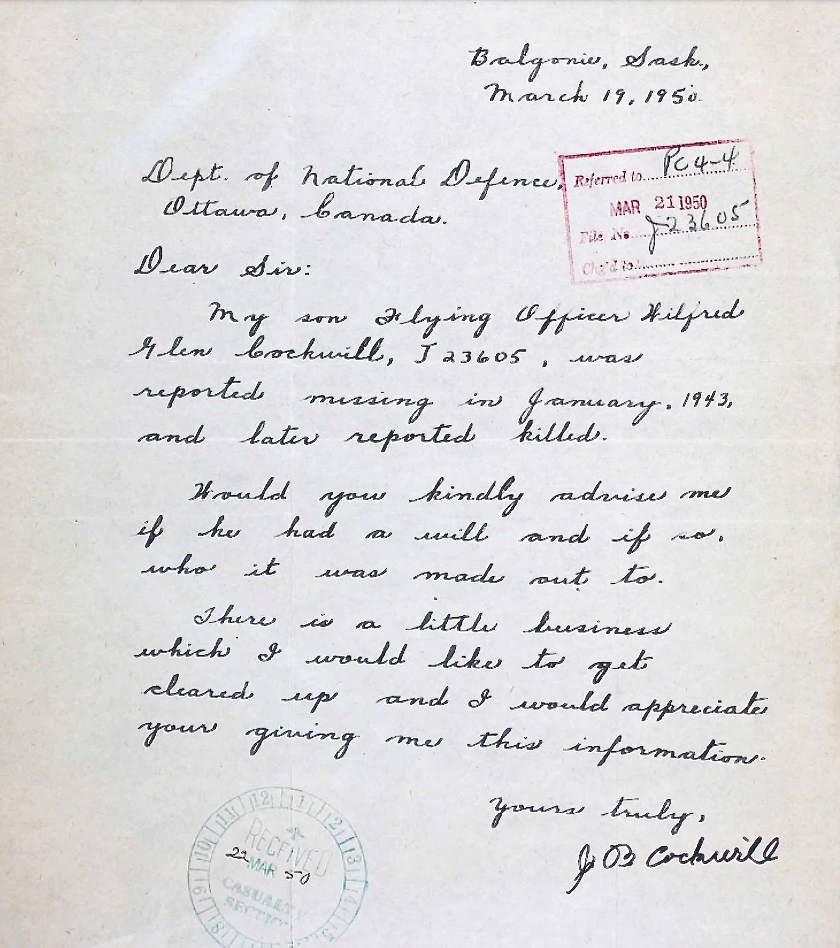 Balgonie, Sask.,
March 19, 1950.
Dept. of National Defence,
Ottawa, Canada.
Referred to PC4-4
MAR 21 1950
File No J23605
Chg'd to
Dear Sir:
My son Flying Officer Wilfred
Glen Cockwill, J 23605, was
reported missing in January, 1943,
and later reported killed.
Would you kindly advise me
if he had a will and if so,
who it was made out to.
There is a little business
which I would like to get
cleared up and I would appreciate
your giving me this information.
Yours truly,
J B Cockwill
RECEIVED
22 MAR 50
CASUALTY
SECTION